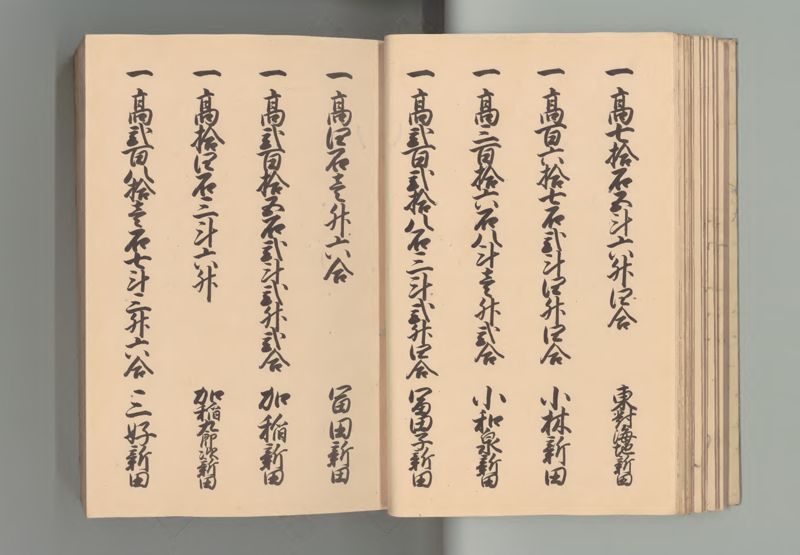 一 高七拾石五斗六升四合 東對海地新田
一 高百六拾七石弐斗四升四合 小林新田
一 高三百拾六石八斗壱升弐合 小和泉新田
一 高弐百弐拾八石三斗弐升四合 冨田子新田
一 高四石壱升六合 冨田新田
一 高弐百拾五石弐斗弐升弐合 加稲新田
一 高拾四石三斗六升 加稲九郎次新田
一 高弐百八拾壱石七斗三升六合 三好新田